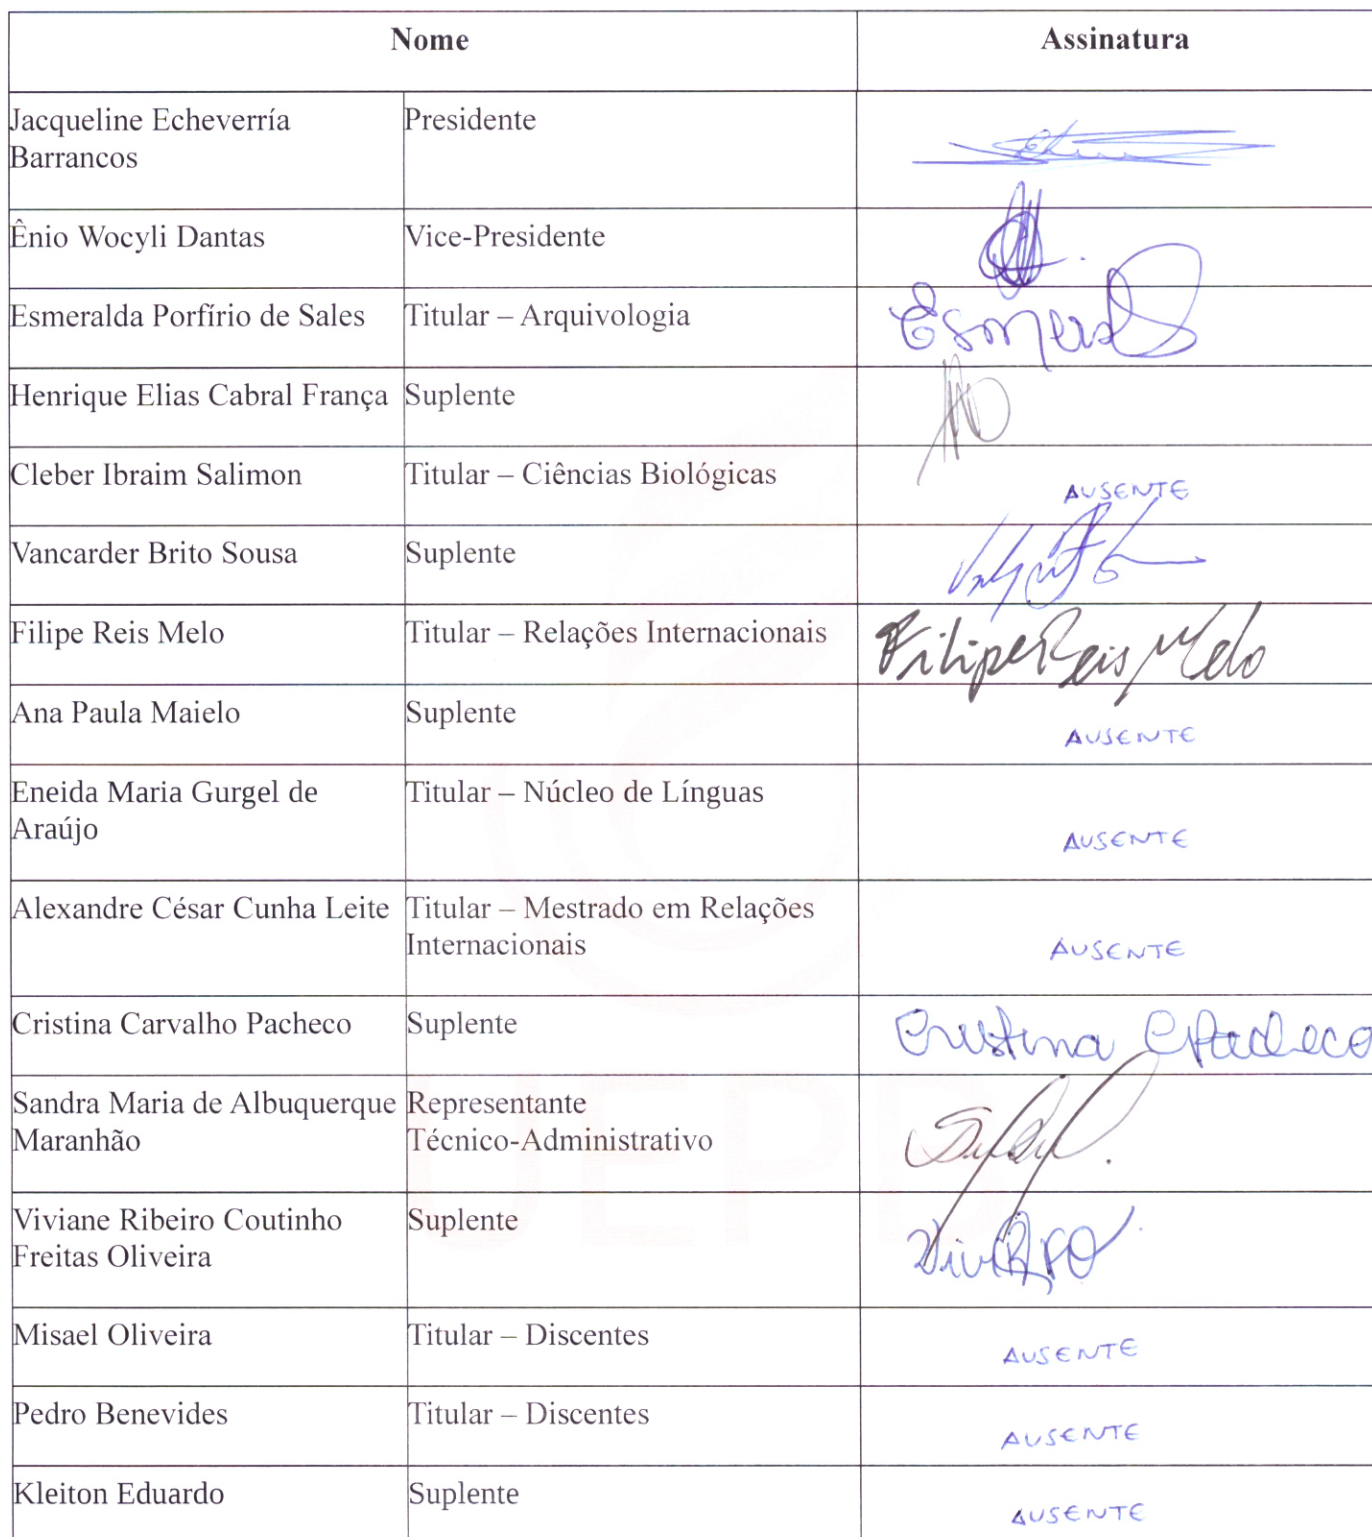 Nome Assinatura
Jacqueline Echeverría Presidente
Barrancos
Ênio Wocyli Dantas Vice-Presidente
Esmeralda Porfírio de Sales Titular – Arquivologia Esmerald
Henrique Elias Cabral França Suplente
Cleber Ibraim Salimon Titular – Ciências Biológicas AUSENTE
Vancarder Brito Sousa Suplente
Filipe Reis Melo Titular – Relações Internacionais Filipe Reis Melo
Ana Paula Maielo Suplente AUSENTE
Eneida Maria Gurgel de Titular – Núcleo de Línguas
Araújo AUSENTE
Alexandre César Cunha Leite Titular – Mestrado em Relações
Internacionais AUSENTE
Cristina Carvalho Pacheco Suplente Cristina CPacheco
Sandra Maria de Albuquerque Representante
Maranhão Técnico-Administrativo
Viviane Ribeiro Coutinho Suplente
Freitas Oliveira ViviRFO
Misael Oliveira Titular – Discentes AUSENTE
Pedro Benevides Titular – Discentes AUSENTE
Kleiton Eduardo Suplente AUSENTE
UEPB